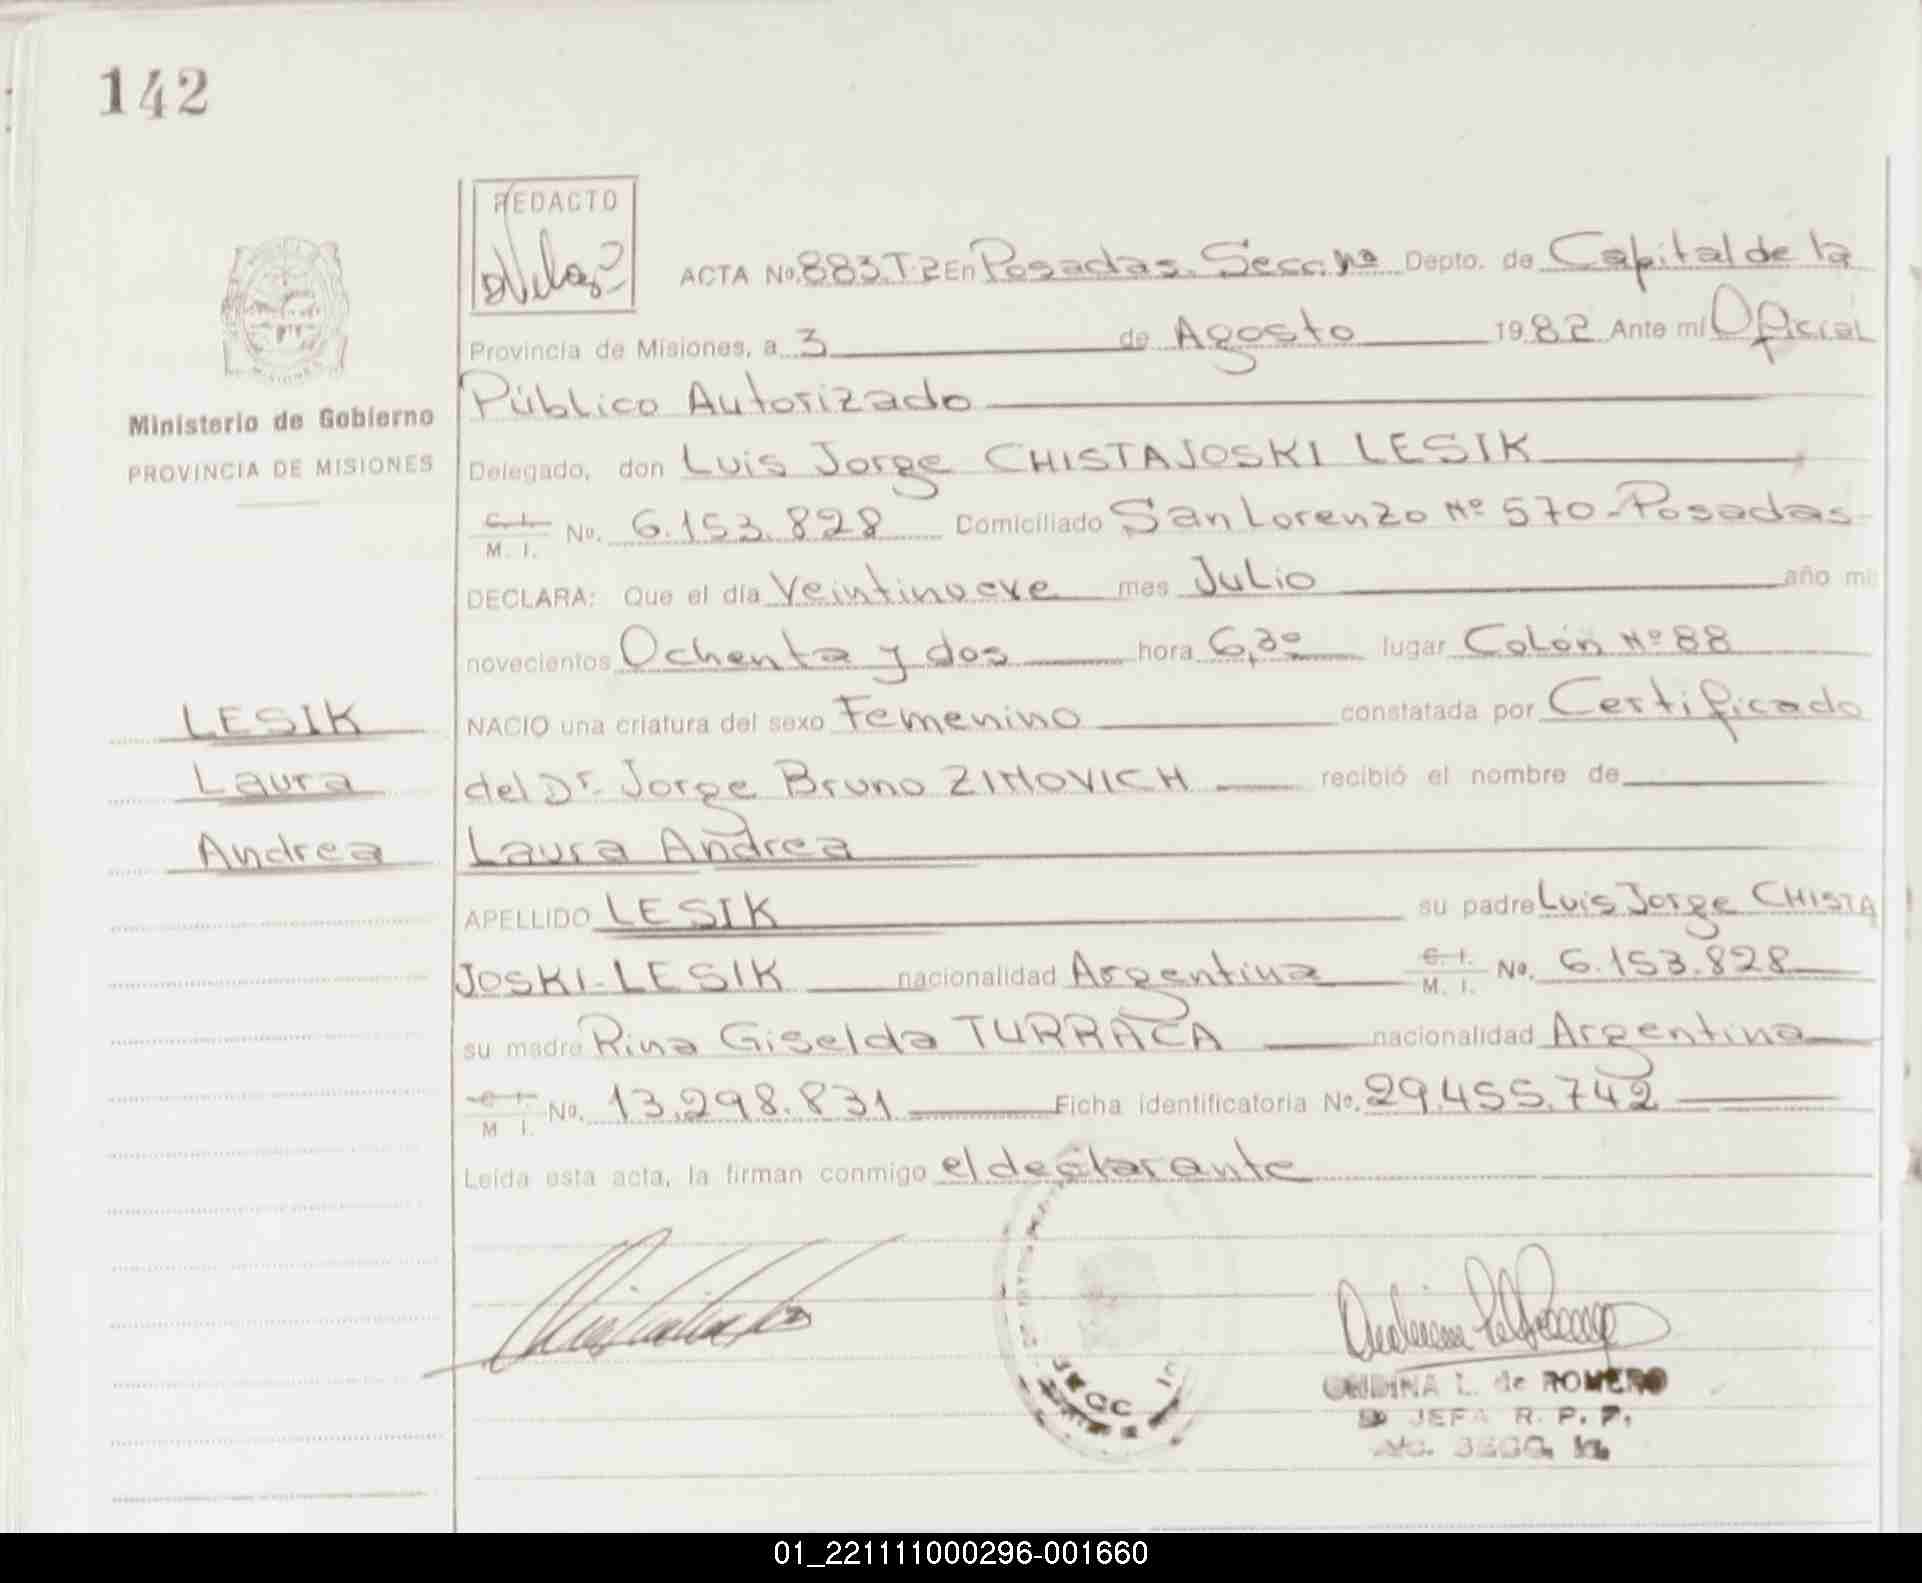 142
REDACTO
ACTA No. 883.T.2 En Posadas. Secc. 1ª Depto. de Capital de la
Provincia de Misiones, a 3 de Agosto 1982 Ante mí Oficial
Público Autorizado
Delegado, don Luis Jorge CHISTAJOSKI LESIK
C. I. M. I. No. 6.153.828 Domiciliado San Lorenzo Nº 570-Posadas-
DECLARA: Que el día Veintinueve mes Julio año mil
novecientos Ochenta y dos hora 6,30 lugar Colón Nº 88
NACIO una criatura del sexo Femenino constatada por Certificado
del Dr. Jorge Bruno ZIMOVICH recibió el nombre de
Laura Andrea
APELLIDO LESIK su padre Luis Jorge CHISTA
JOSKI-LESIK nacionalidad Argentina C. I. M. I. No. 6.153.828
su madre Rina Giselda TURRACA nacionalidad Argentina
C. I. M. I. No. 13.298.831 Ficha identificatoria No. 29.455.742
Leída esta acta, la firman conmigo el declarante
MISIONES
Ministerio de Gobierno
PROVINCIA DE MISIONES
LESIK
Laura
Andrea
L. de ROMERO
JEFA R. P. P.
01_221111000296-001660